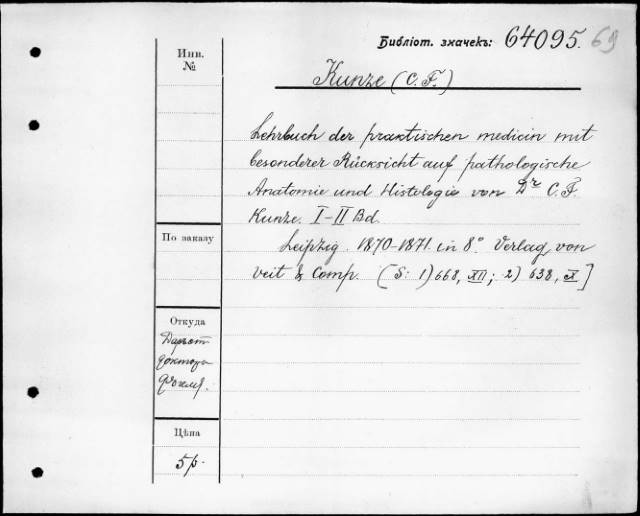 Библіот. значекъ: 64095. 69
Инв.
№
Kunze (C. F.)
Lehrbuch der praktischen medicin mit
besonderer Rücksicht auf pathologische
Anatomie und Histologie von Dr C. F.
Kunze. I-II Bd.
По заказу
Leipzig. 1870-1871. in 8° Verlag von
Veit & Comp. (S: 1) 668, XII; 2) 638, X]
Откуда
Даръ от
доктора
Цѣна
5 р.